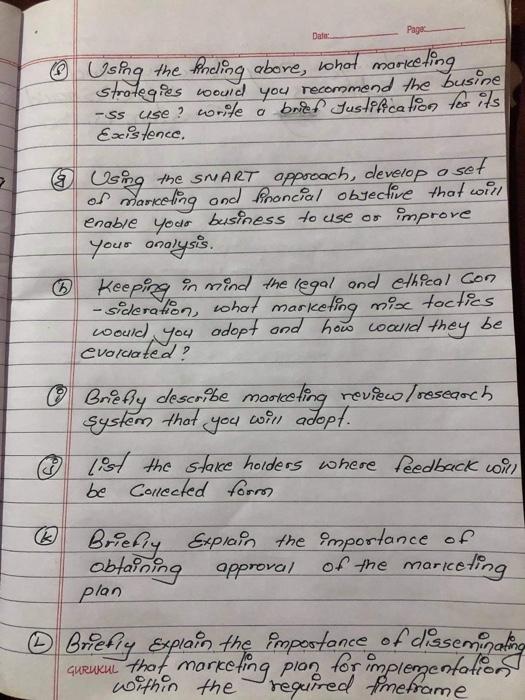 Date: Page:
(f) Using the finding above, what marketing
strategies would you recommend the busine
-ss use? write a brief Justification for its
Existence.
(g) Using the SMART approach, develop a set
of marketing and financial objective that will
enable your business to use or improve
your analysis.
(h) Keeping in mind the legal and ethical Con
-sideration, what marketing mix tactics
would you adopt and how would they be
evaluated?
(i) Briefly describe marketing review/research
system that you will adopt.
(j) List the stake holders where feedback will
be Collected form
(k) Briefly Explain the importance of
obtaining approval of the marketing
plan
(L) Briefly Explain the importance of disseminating
GURUKUL that marketing plan for implementation
within the required timeframe